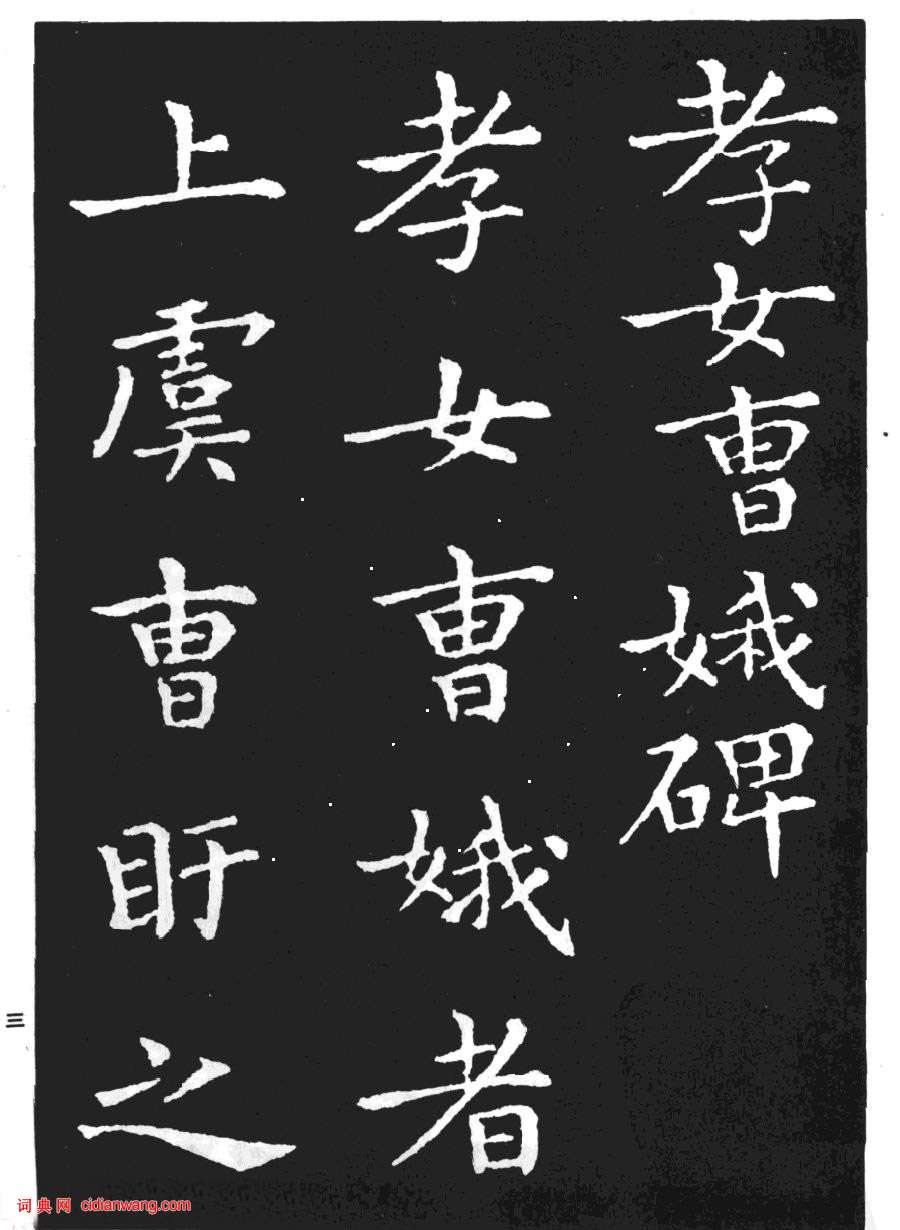 孝女曹娥碑
孝女曹娥者
上虞曹盱之
三
词典网 cidianwang.com